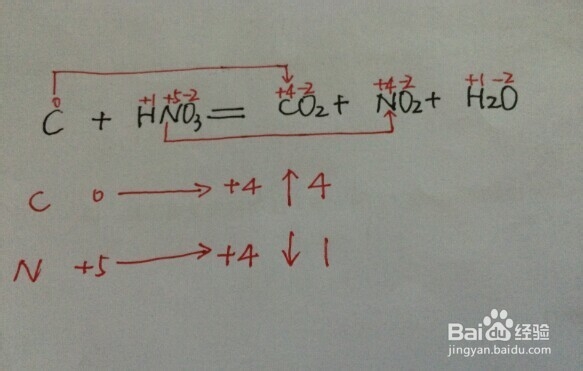 0 +1 +5 -2 +4 -2 +4 -2 +1 -2
C + HNO₃ = CO₂ + NO₂ + H₂O
C 0 → +4 ↑ 4
N +5 → +4 ↓ 1
Baidu 经验
jingyan.baidu.com